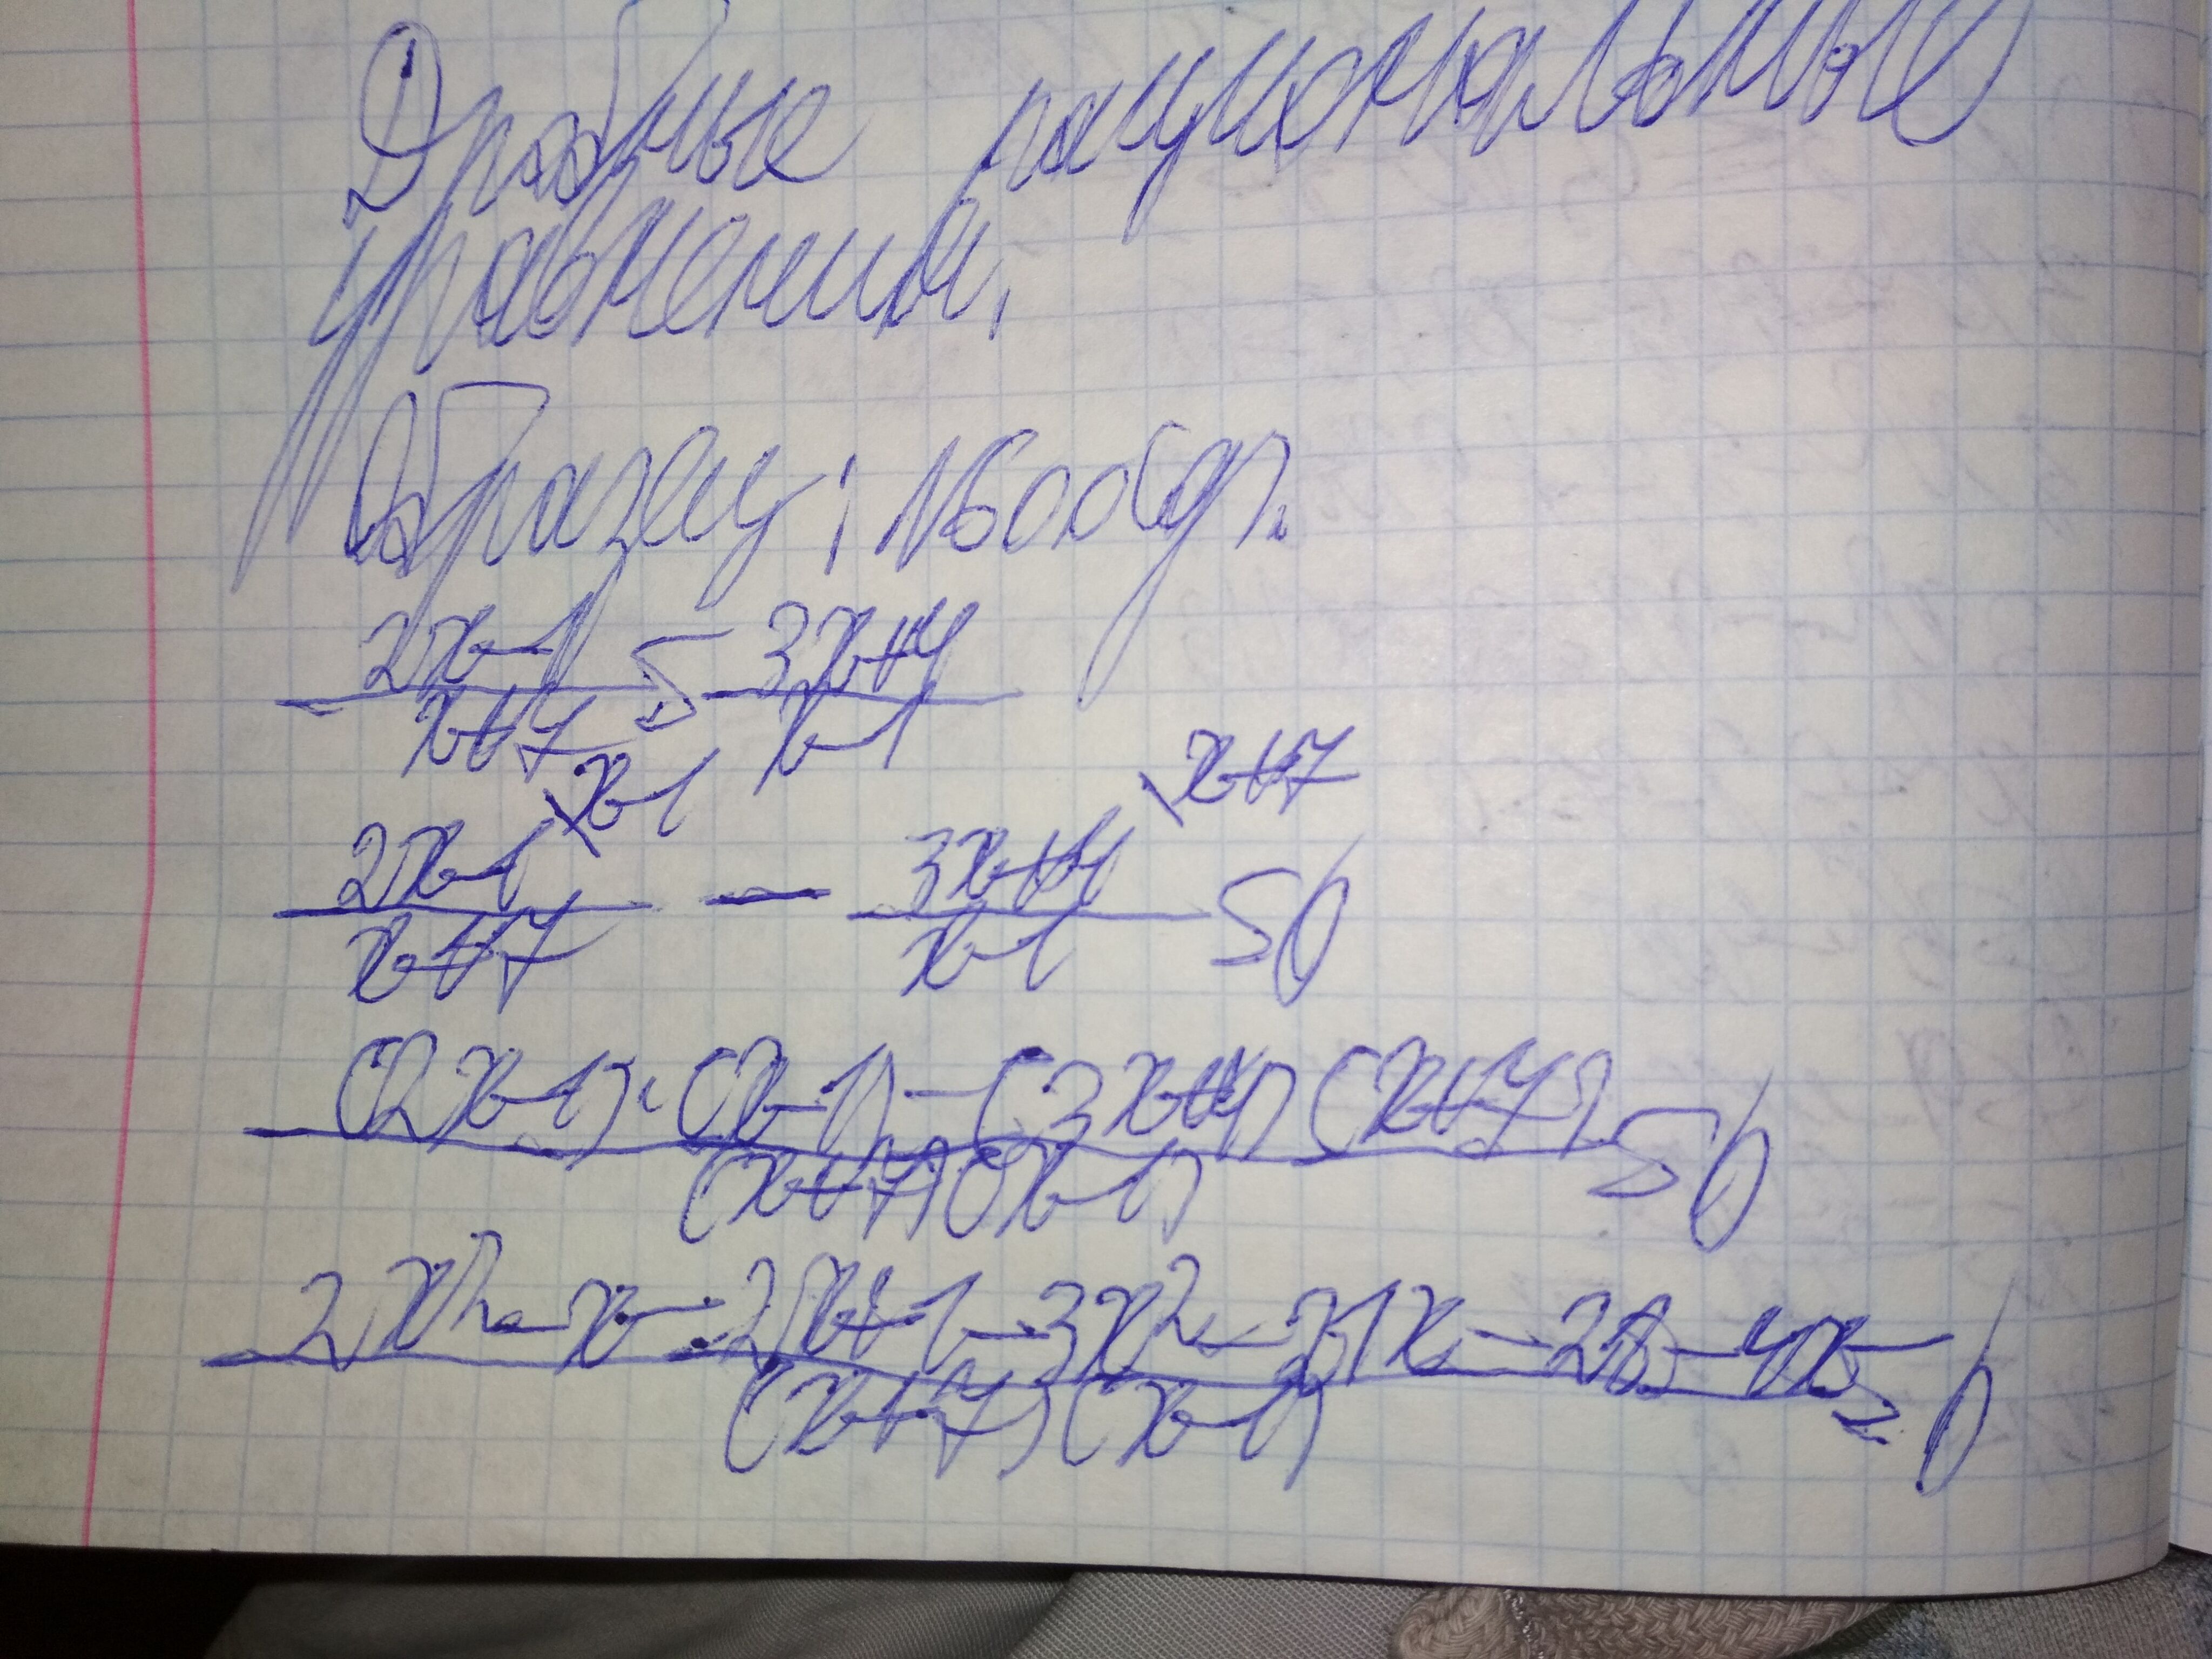 Дробные рациональные
уравнения.
Образец: №600бдг.
2x-1 = 3x+4
x+7 x-1
\x-1 \x+7
2x-1 — 3x+4 =0
x+7 x-1
(2x-1)·(x-1)-(3x+4)(x+7)=0
(x+7)(x-1)
2x²-x-2x+1-3x²-21x-28-4x=0
(x+7)(x-1)